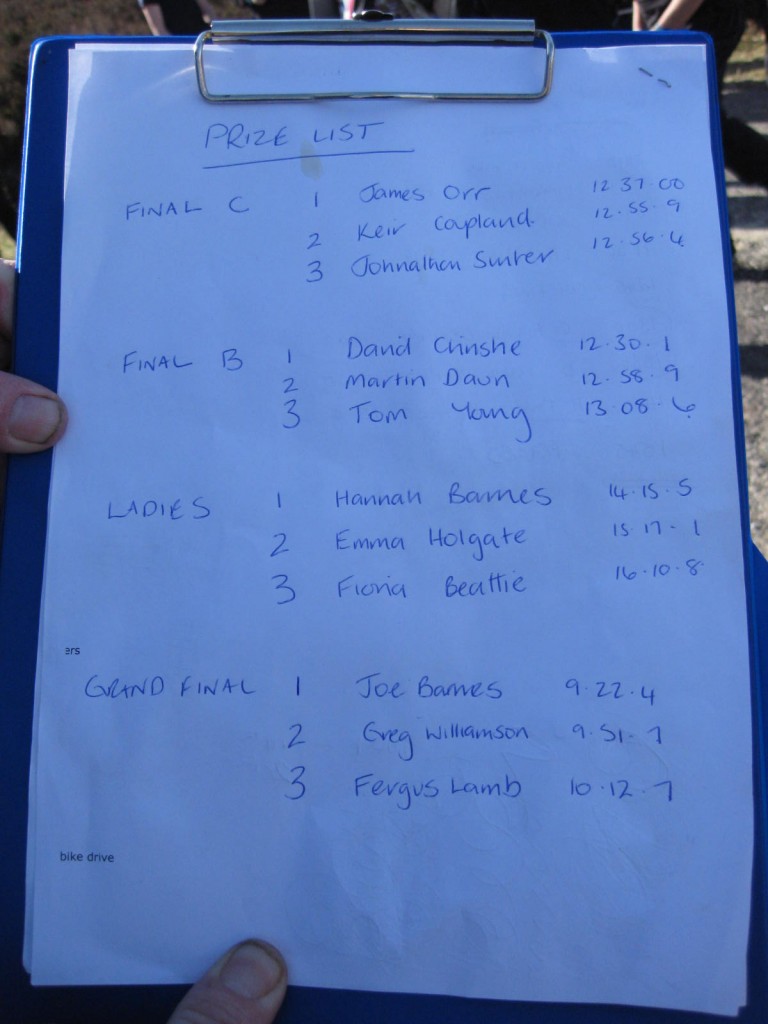 PRIZE LIST
FINAL C 1 James Orr 12.37.00
2 Keir Coupland. 12.55.9
3 Johnathan Sunter 12.56.4
FINAL B 1 David Clinshe 12.30.1
2 Martin Davn 12.58.9
3 Tom Young 13.08.6
LADIES 1 Hannah Barnes 14.15.5
2 Emma Holgate 15.17.1
3 Fiona Beattie 16.10.8
ers
GRAND FINAL 1 Joe Barnes 9.22.4
2 Greg Williamson 9.51.7
3 Fergus Lamb 10.12.7
bike drive